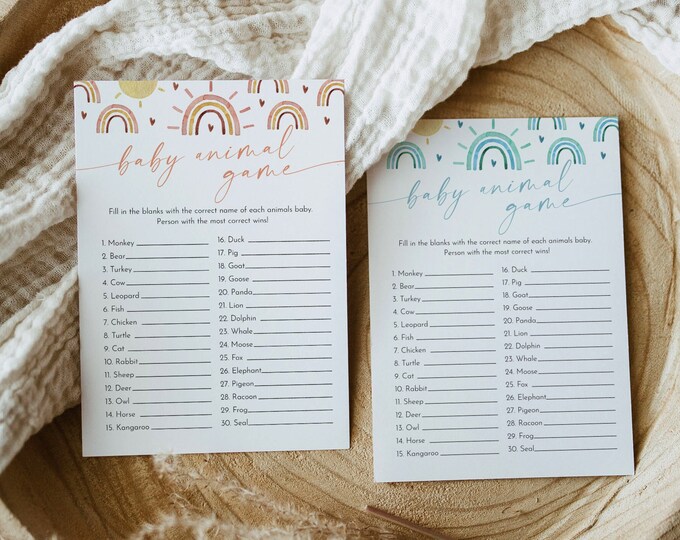 baby animal
game
Fill in the blanks with the correct name of each animals baby.
Person with the most correct wins!
1. Monkey
2. Bear
3. Turkey
4. Cow
5. Leopard
6. Fish
7. Chicken
8. Turtle
9. Cat
10. Rabbit
11. Sheep
12. Deer
13. Owl
14. Horse
15. Kangaroo
16. Duck
17. Pig
18. Goat
19. Goose
20. Panda
21. Lion
22. Dolphin
23. Whale
24. Moose
25. Fox
26. Elephant
27. Pigeon
28. Racoon
29. Frog
30. Seal
baby animal
game
Fill in the blanks with the correct name of each animals baby.
Person with the most correct wins!
1. Monkey
2. Bear
3. Turkey
4. Cow
5. Leopard
6. Fish
7. Chicken
8. Turtle
9. Cat
10. Rabbit
11. Sheep
12. Deer
13. Owl
14. Horse
15. Kangaroo
16. Duck
17. Pig
18. Goat
19. Goose
20. Panda
21. Lion
22. Dolphin
23. Whale
24. Moose
25. Fox
26. Elephant
27. Pigeon
28. Racoon
29. Frog
30. Seal